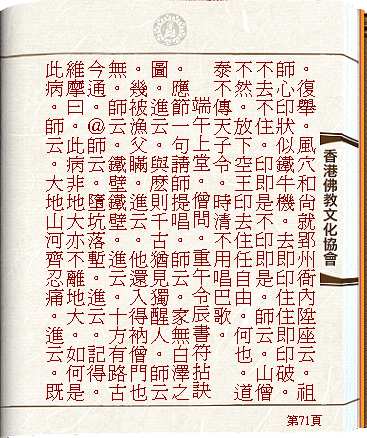 。復舉。風穴和尚就郢州衙內陞座云。祖
師心印狀似鐵牛機。去即印住住即印破。
不去不住。印即是不印即是。師云。山僧
不然。放下空王印去住任自由。何也。道
泰不傳天子令。時清不用唱巴歌。
端午上堂。僧問。重午令辰書符拈訣
。應節一句請師提唱。師云。家無白澤之
圖。進云。與麼則千古猶見獨醒人。師云
。幾被漁父瞞。進云。他還入得衲僧門也
無。師云。鐵壁鐵壁。進云。十方有路古
今通。@師云。墮坑落塹。進云。記得。
維摩曰。此病非地大亦不離地大。如何是
此病。師云。大地山河齊忍痛。進云。既
香港佛教文化協會
第71頁